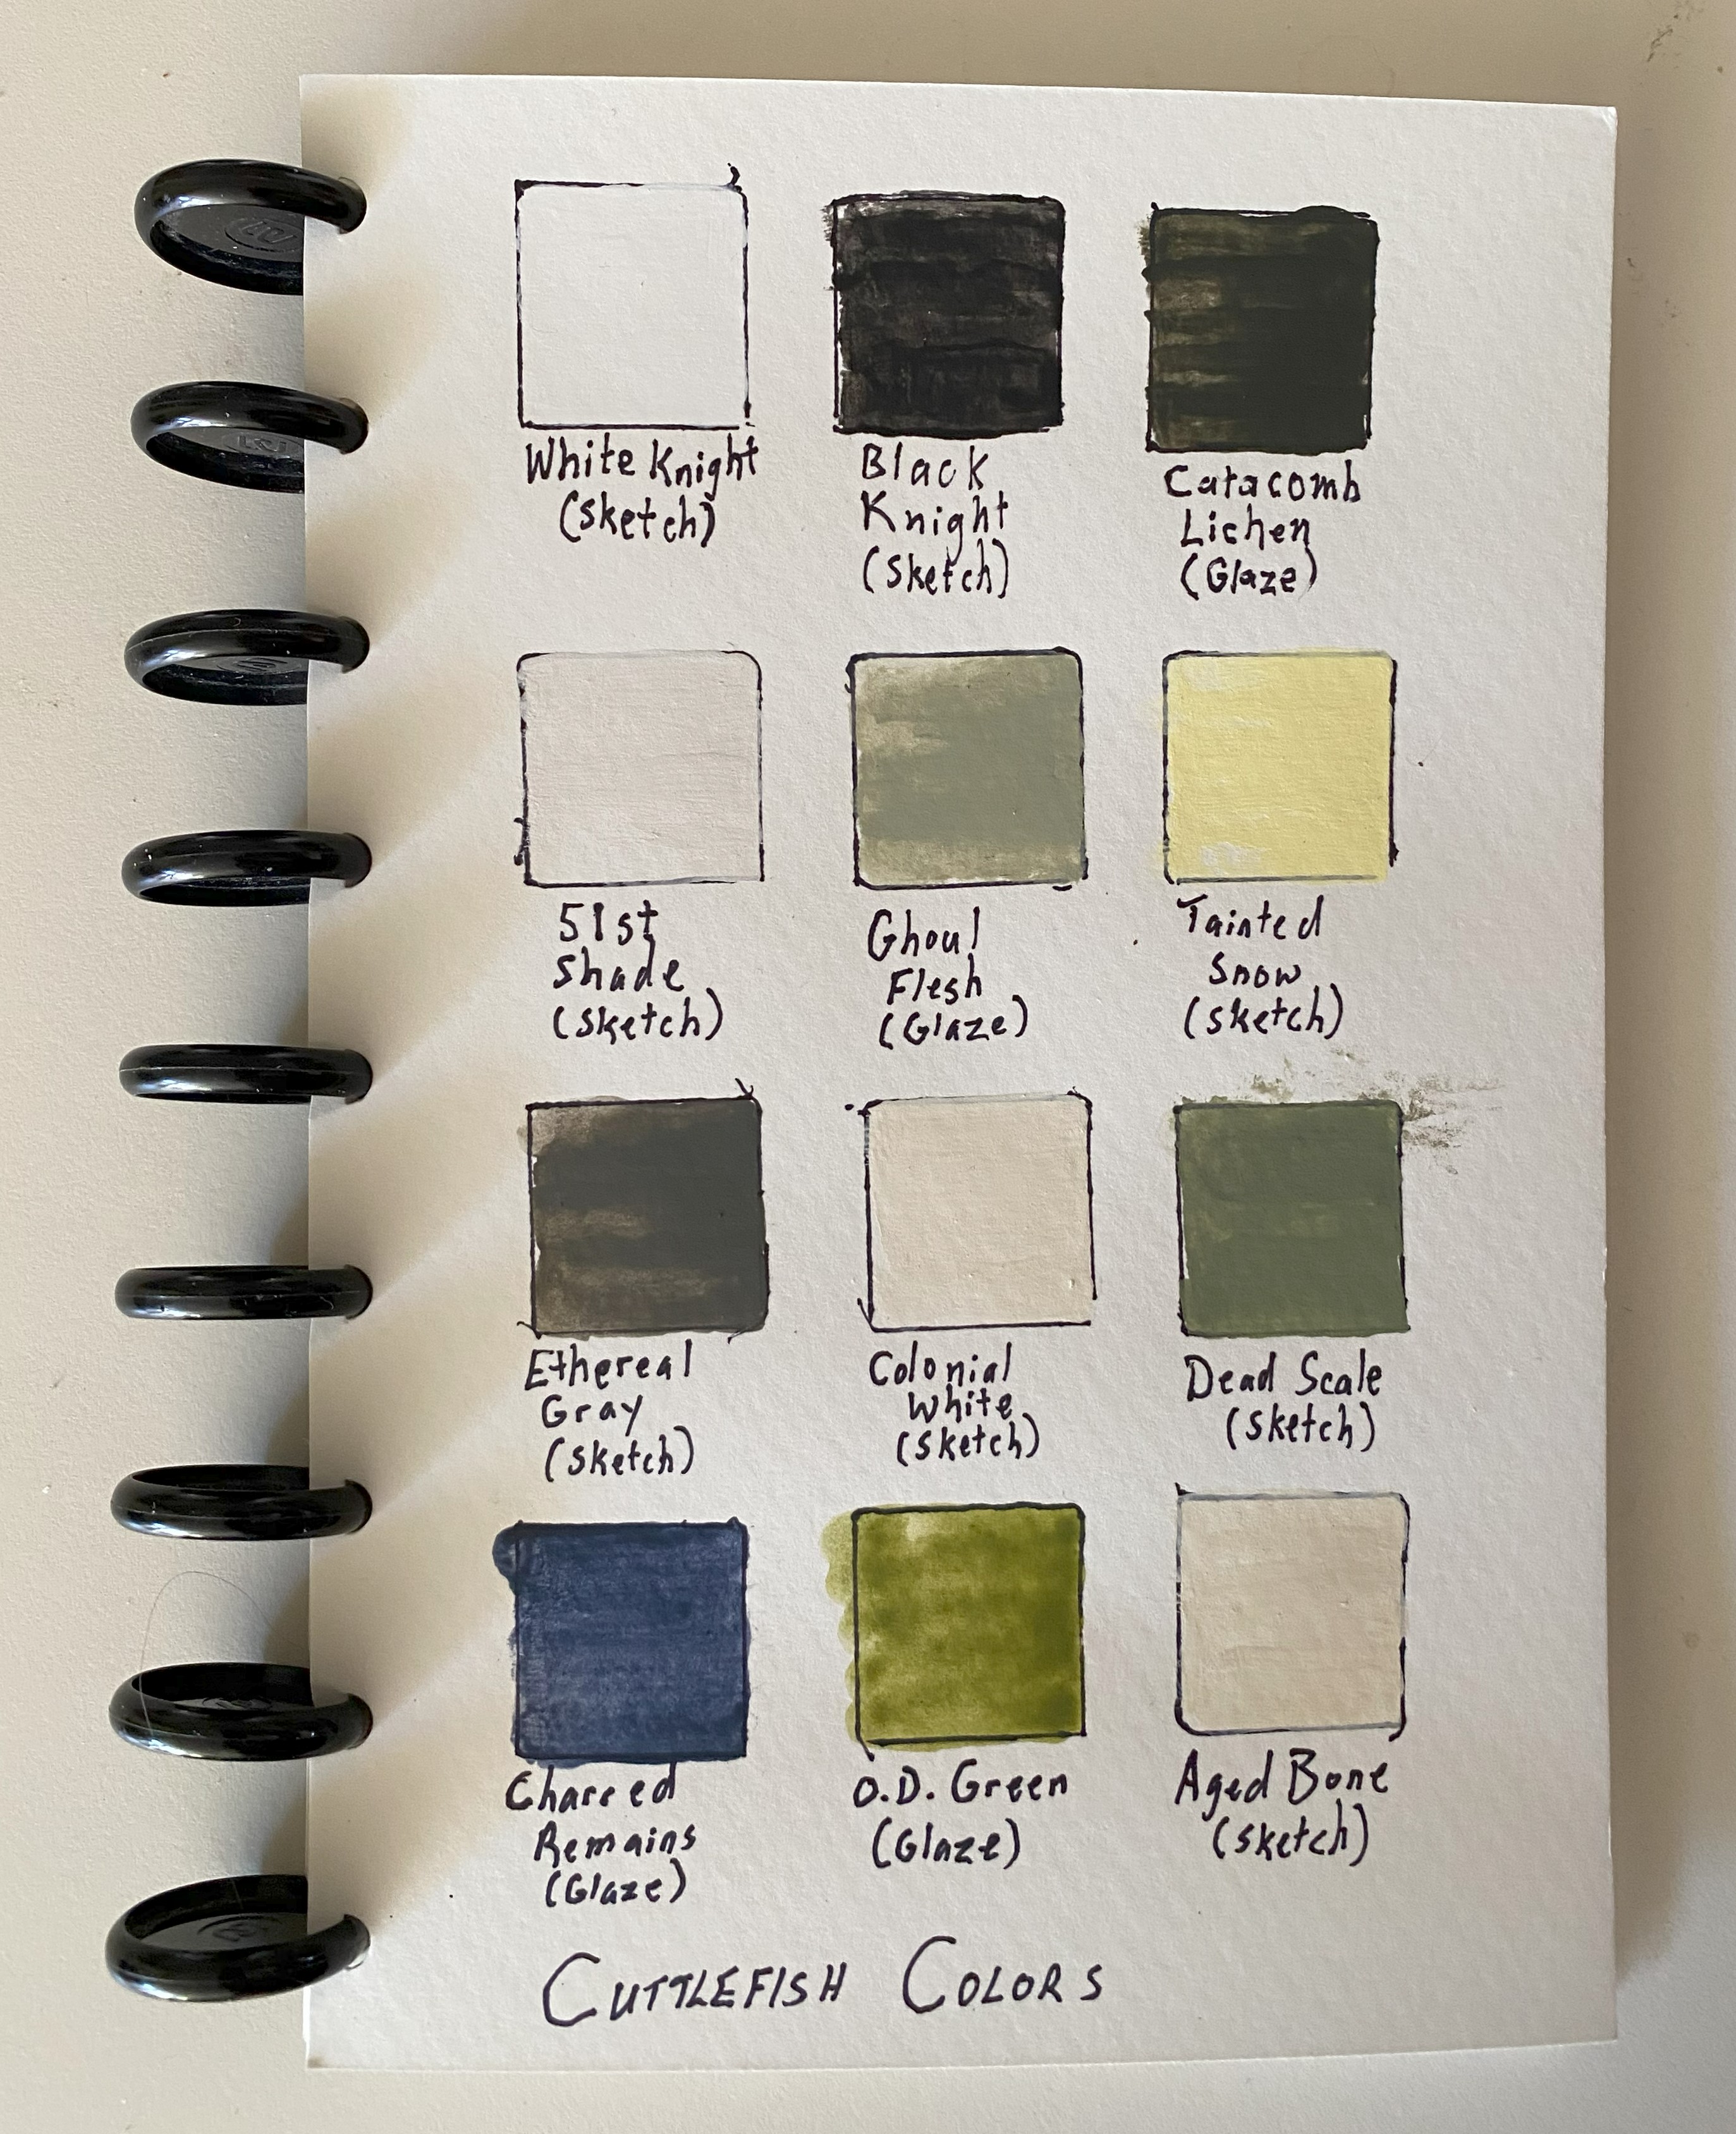 White Knight
(Sketch)
Black
Knight
(Sketch)
Catacomb
Lichen
(Glaze)
51st
Shade
(Sketch)
Ghoul
Flesh
(Glaze)
Tainted
Snow
(Sketch)
Ethereal
Gray
(Sketch)
Colonial
White
(Sketch)
Dead Scale
(Sketch)
Charred
Remains
(Glaze)
O.D. Green
(Glaze)
Aged Bone
(Sketch)
CUTTLEFISH COLORS